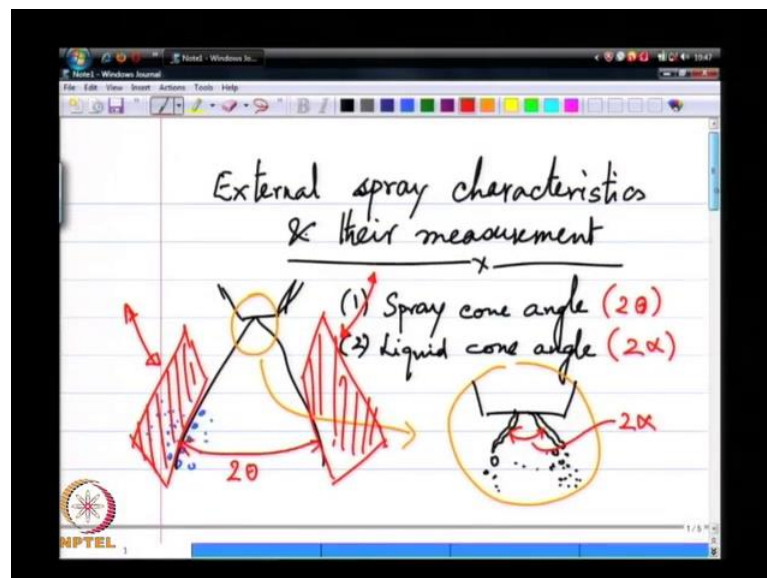 Note1 - Windows Jo...
10:47
Note1 - Windows Journal
File Edit View Insert Actions Tools Help
B I
External spray characteristics
& their measurement
x
(1) Spray cone angle (2θ)
(2) Liquid cone angle (2α)
2α
2θ
1 / 5
NPTEL
1